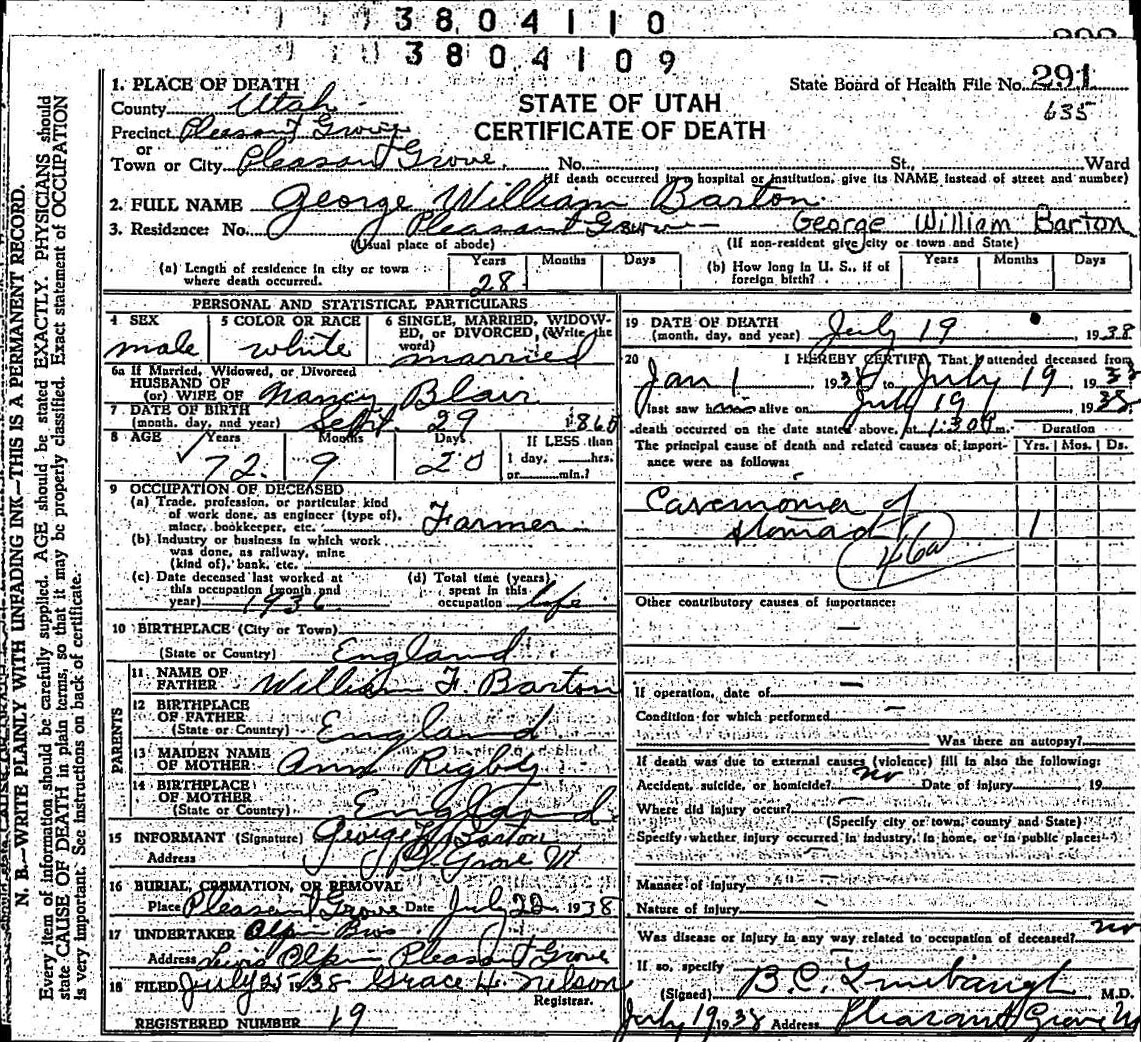 3804110
3804109
1. PLACE OF DEATH
County Utah
Precinct Pleasant Grove
or
Town or City Pleasant Grove No. St., Ward
(If death occurred in a hospital or institution, give its NAME instead of street and number)
State Board of Health File No. 291
635
STATE OF UTAH
CERTIFICATE OF DEATH
2. FULL NAME George William Barton
3. Residence: No. Pleasant Grove George William Barton
(Usual place of abode) (If non-resident give city or town and State)
(a) Length of residence in city or town where death occurred. Years 28 Months Days
(b) How long in U. S., if of foreign birth? Years Months Days
PERSONAL AND STATISTICAL PARTICULARS
4 SEX male
5 COLOR OR RACE white
6 SINGLE, MARRIED, WIDOWED, or DIVORCED, (Write the word) married
6a If Married, Widowed, or Divorced
HUSBAND OF
(or) WIFE OF Nancy Blair
7 DATE OF BIRTH
(month, day, and year) Sept. 29 186
8 AGE Years 72 Months 9 Days 20 If LESS than
1 day, hrs.
or min.?
9 OCCUPATION OF DECEASED
(a) Trade, profession, or particular kind
of work done, as engineer (type of),
miner, bookkeeper, etc. Farmer
(b) Industry or business in which work
was done, as railway, mine
(kind of), bank, etc.
(c) Date deceased last worked at
this occupation (month and
year) 1936
(d) Total time (years)
spent in this
occupation life
10 BIRTHPLACE (City or Town)
(State or Country) England
PARENTS
11 NAME OF
FATHER William F. Barton
12 BIRTHPLACE
OF FATHER
(State or Country) England
13 MAIDEN NAME
OF MOTHER Ann Rigby
14 BIRTHPLACE
OF MOTHER
(State or Country) England
15 INFORMANT (Signature) George Barton
Address Pl Grove Ut
16 BURIAL, CREMATION, OR REMOVAL
Place Pleasant Grove Date July 22 1938
17 UNDERTAKER Olpin Bros
Address Olpin Pleasant Grove
18 FILED July 25 1938 Grace H. Nelson
Registrar.
REGISTERED NUMBER 19
19 DATE OF DEATH
(month, day, and year) July 19 1938
20 I HEREBY CERTIFY, That I attended deceased from
Jan 1 193 to July 19, 1938
last saw h alive on July 19 1938
death occurred on the date stated above, at 1:30 m.
The principal cause of death and related causes of importance were as follows: Duration
Yrs. Mos. Ds.
Carcinoma of
stomach 1
46a
Other contributory causes of importance:
If operation, date of
Condition for which performed
Was there an autopsy?
If death was due to external causes (violence) fill in also the following:
Accident, suicide, or homicide? no Date of injury 19
Where did injury occur?
(Specify city or town, county and State)
Specify whether injury occurred in industry, in home, or in public place
Manner of injury
Nature of injury
Was disease or injury in any way related to occupation of deceased? no
If so, specify
(Signed) B.C. Linebaugh M.D.
July 19 1938 Address Pleasant Grove
N. B.—WRITE PLAINLY WITH UNFADING INK—THIS IS A PERMANENT RECORD.
Every item of information should be carefully supplied. AGE should be stated EXACTLY. PHYSICIANS should
state CAUSE OF DEATH in plain terms, so that it may be properly classified. Exact statement of OCCUPATION
is very important. See instructions on back of certificate.